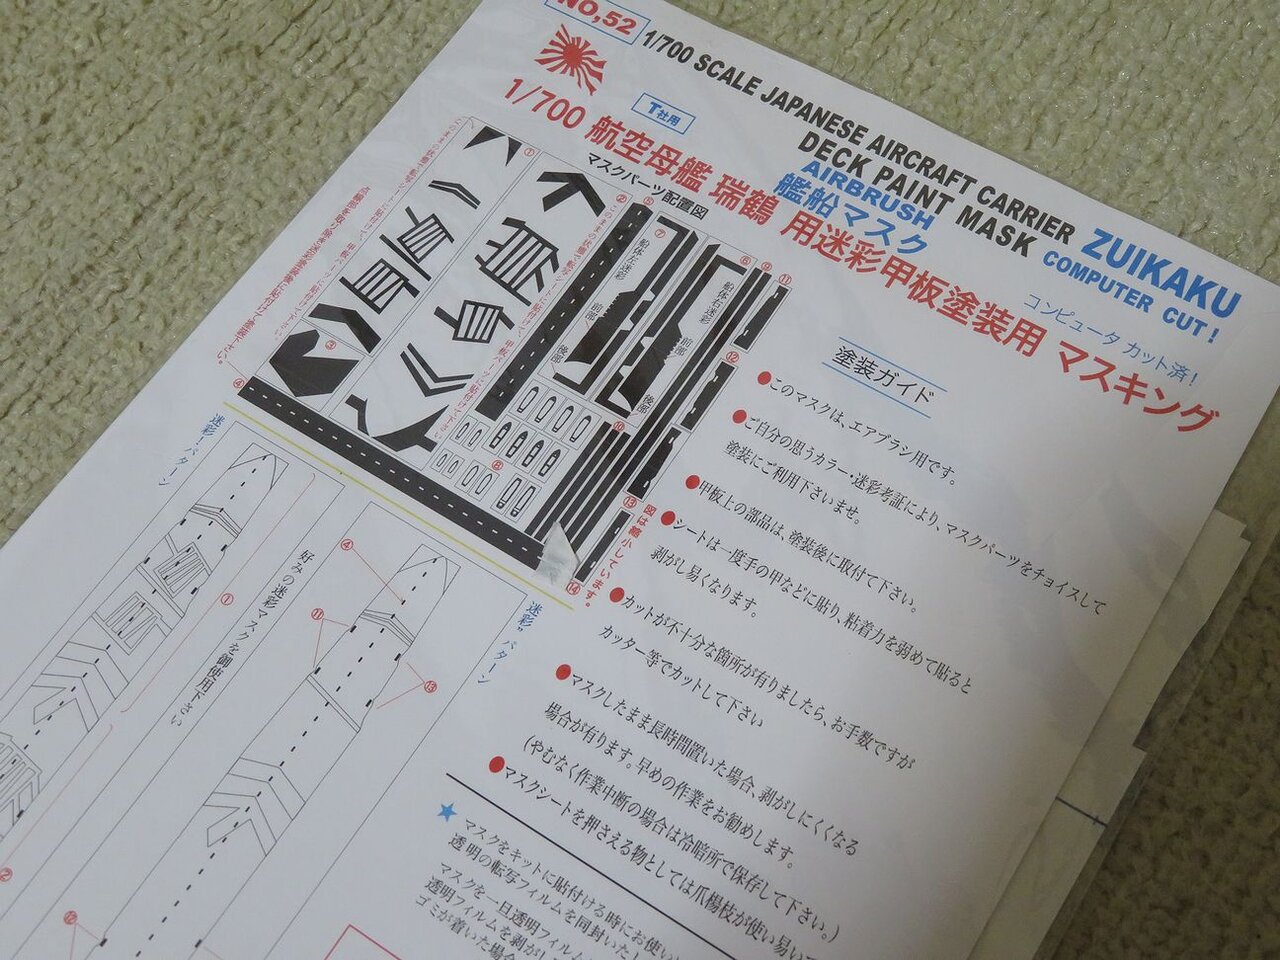 NO,52
1/700 SCALE JAPANESE AIRCRAFT CARRIER ZUIKAKU
DECK PAINT MASK COMPUTER CUT !
AIRBRUSH
艦船マスク
コンピュータ カット済!
T社用
1/700 航空母艦 瑞鶴 用迷彩甲板塗装用 マスキング
マスクパーツ配置図
①
②
③
④
⑤
⑦
⑥
⑨
⑪
⑫
⑩
⑧
⑬
⑭
船体左迷彩
前部
後部
船体右迷彩
前部
後部
図は縮小しています。
塗装ガイド
●このマスクは、エアブラシ用です。
●ご自分の思うカラー・迷彩考証により、マスクパーツをチョイスして
塗装にご利用下さいませ。
●甲板上の部品は、塗装後に取付て下さい。
●シートは一度手の甲などに貼り、粘着力を弱めて貼ると
剥がし易くなります。
●カットが不十分な箇所が有りましたら、お手数ですが
カッター等でカットして下さい
●マスクしたまま長時間置いた場合、剥がしにくくなる
場合が有ります。早めの作業をお勧めします。
(やむなく作業中断の場合は冷暗所で保存して下さい。)
●マスクシートを押さえる物としては爪楊枝が使い易い
★マスクをキットに貼付ける時にお使い
透明の転写フィルムを同封いたし
マスクを一旦透明フィルム
透明フィルムを剥がし
ゴミが着いた場合
迷彩Ⅰパターン
①
②
好みの迷彩マスクを御使用下さい
迷彩Ⅱパターン
④
⑪
⑬
⑫